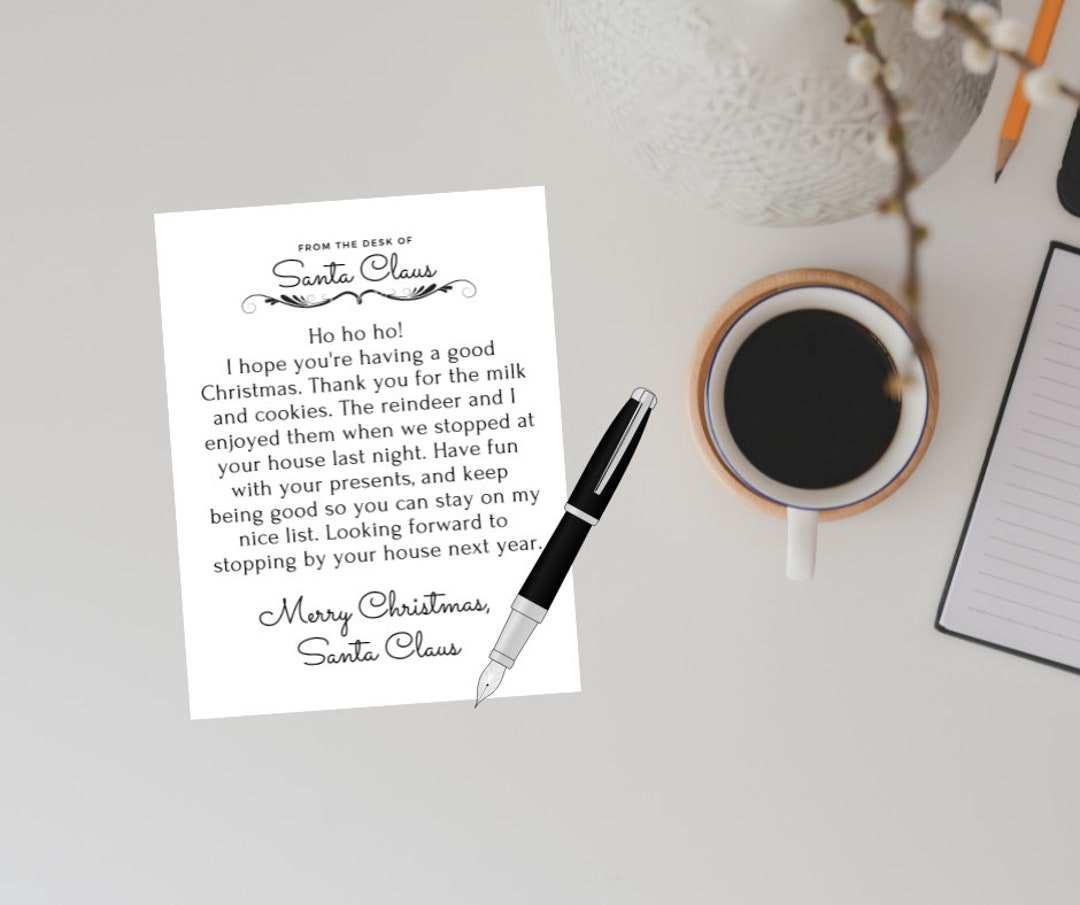 FROM THE DESK OF
Santa Claus
Ho ho ho!
I hope you're having a good
Christmas. Thank you for the milk
and cookies. The reindeer and I
enjoyed them when we stopped at
your house last night. Have fun
with your presents, and keep
being good so you can stay on my
nice list. Looking forward to
stopping by your house next year.
Merry Christmas,
Santa Claus